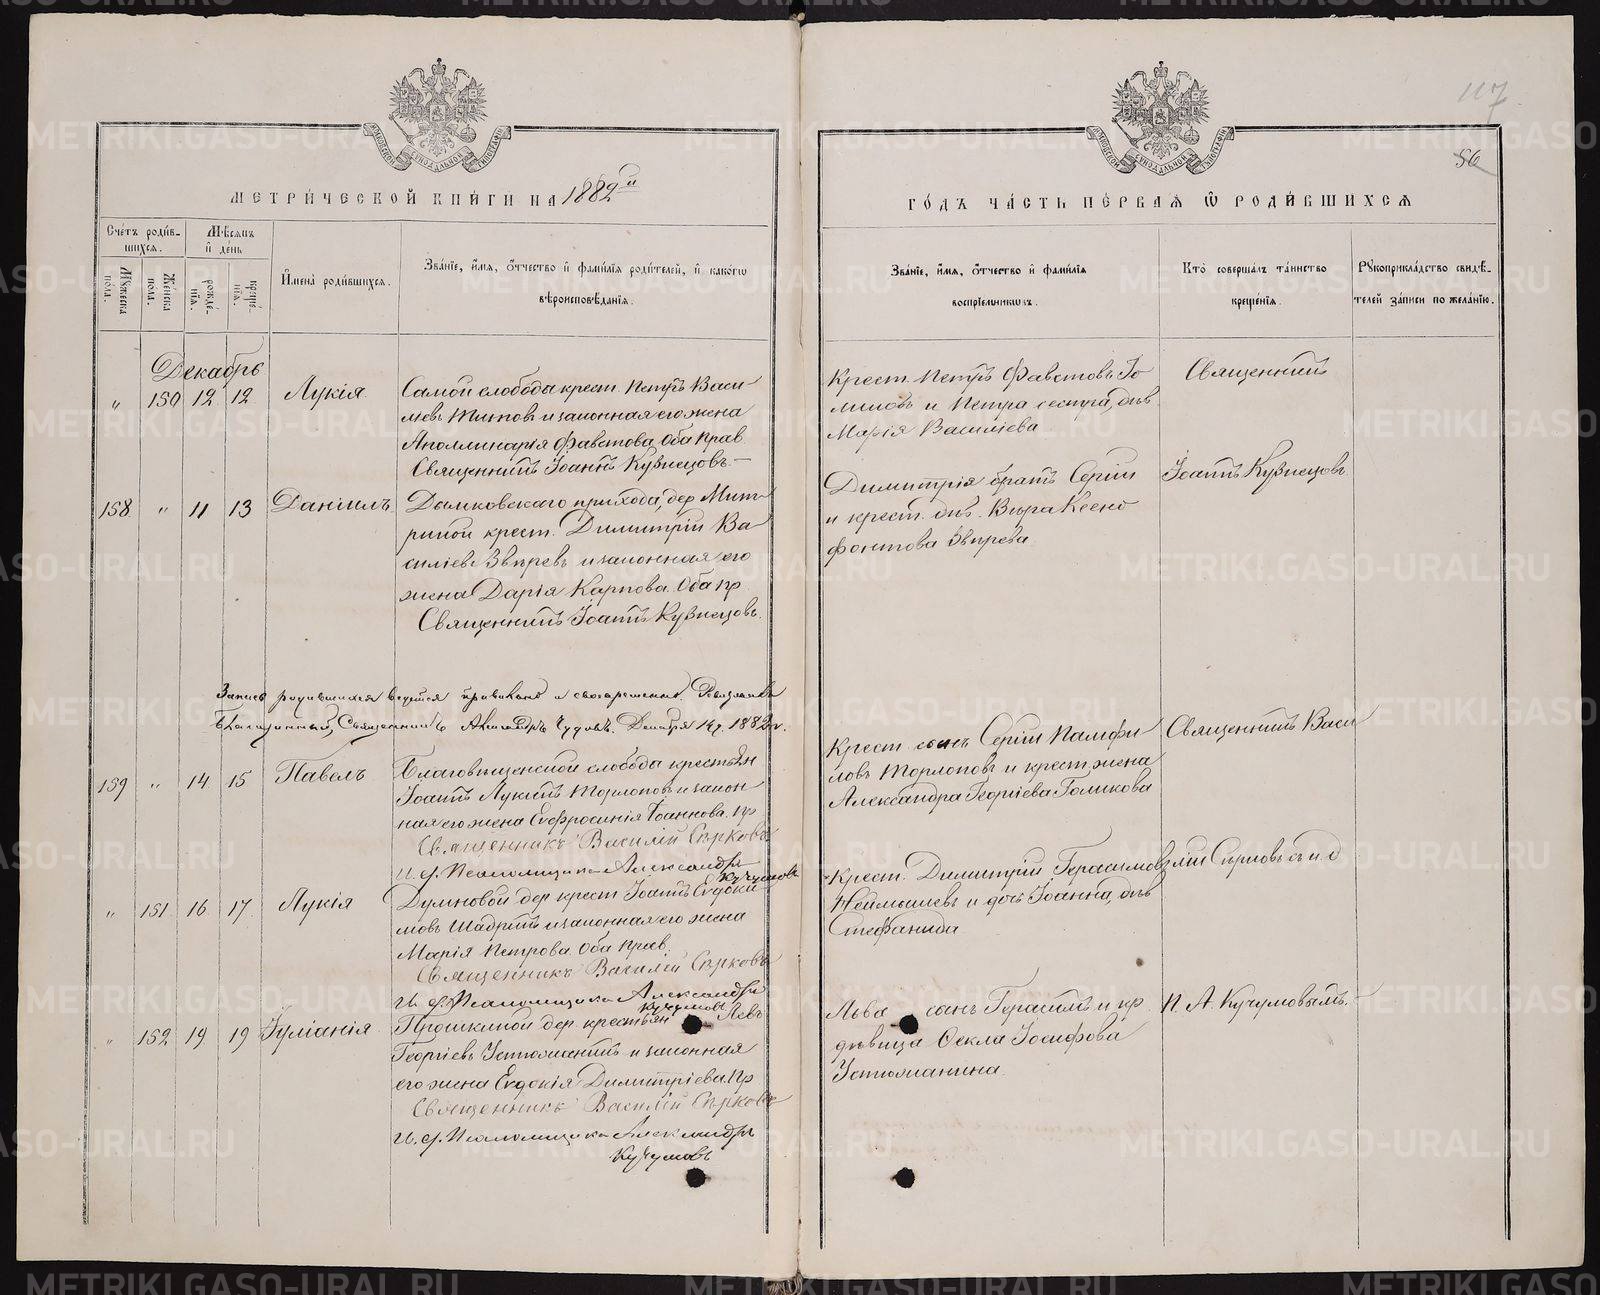 117
56
МОСКОВСКОЙ СѴНОДАЛЬНОЙ ТИПОГРАФІИ
МОСКОВСКОЙ СѴНОДАЛЬНОЙ ТИПОГРАФІИ
МЕТРИ́ЧЕСКОЙ КНИ́ГИ НА 1882й
ГО́ДЪ ЧА́СТЬ ПЕ́РВАѦ Ѿ РОДИ́ВШИХСѦ
Сче́тъ роди́в-
шихсѧ.
Мѣсѧцъ
и҆ де́нь
Мꙋжеска
пола.
Же́нска
пола.
рожде́-
нїѧ.
креще́-
нїѧ.
И҆мена̀ роди́вшихсѧ.
Зва́нїе, и҆́мѧ, ѻ҆́тчество и҆ фами́лїѧ роди́телей, и҆ како́гѡ
вѣроисповѣ́данїѧ.
Зва́нїе, и҆́мѧ, ѻ҆́тчество и҆ фами́лїѧ
воспрїе́мниковъ.
Кто̀ соверша́лъ та́инство
креще́нїѧ.
Рꙋкоприкла́дство свидѣ́-
телей за́писи по жела́нїю.
Декабрь
" 150 12 12 Лукія
Самой слободы крест. Петръ Васи-
льевъ Титовъ и законная его жена
Аполлинарія Фавстова. Оба прав.
Священникъ Іоаннъ Кузнецовъ.
Крест. Петръ Фавстовъ То
миловъ и Петра сестра, двѣ
Марія Васильева
Священникъ
158 " 11 13 Даніилъ
Дымковскаго прихода, дер. Мит-
риной крест. Димитрій Ва
силіевъ Звѣревъ и законная его
жена Дарія Карпова. Оба пр
Священникъ Іоаннъ Кузнецовъ.
Димитрія братъ Сергій
и крест. двѣ. Вѣра Ксено
фонтова Звѣрева
Іоаннъ Кузнецовъ
Запись родившихся ведется правильно и своевременно.
Благочинный, Священникъ Александръ Чудовъ. Декабря 14 д. 1882 г.
159 " 14 15 Павелъ
Благовѣщенской слободы крестьян
Іоаннъ Лукинъ Торлоповъ и закон
ная его жена Евфросинія Іоаннова. пр
Священникъ Василій Сѣрковъ
И. д. Псаломщика Александръ
Кучумовъ
Крест. сынъ Сергій Памфи
ловъ Торлоповъ и крест. жена
Александра Георгіева Голикова
Священникъ Васи
" 151 16 17 Лукія
Думновой дер. крест. Іоаннъ Евдоки
мовъ Шадринъ и законная его жена
Марія Петрова. Оба прав.
Священникъ Василій Сѣрковъ
И. д. Псаломщика Александръ
Кучумовъ
Крест. Димитрій Герасимовъ
Неймышевъ и дочь Іоанна, двѣ
Стефанида
лій Сѣрковъ съ и. д.
" 152 19 19 Іуліанія
Прошкиной дер. крестьян Левъ
Георгіевъ Устюжанинъ и законная
его жена Евдокія Димитріева. пр
Священникъ Василій Сѣрковъ
И. д. Псаломщика Александръ
Кучумовъ
Льва сынъ Герасимъ и кр
дѣвица Ѳекла Іосифова
Устюжанина
П. А. Кучумовымъ.
METRIKI.GASO-URAL.RU